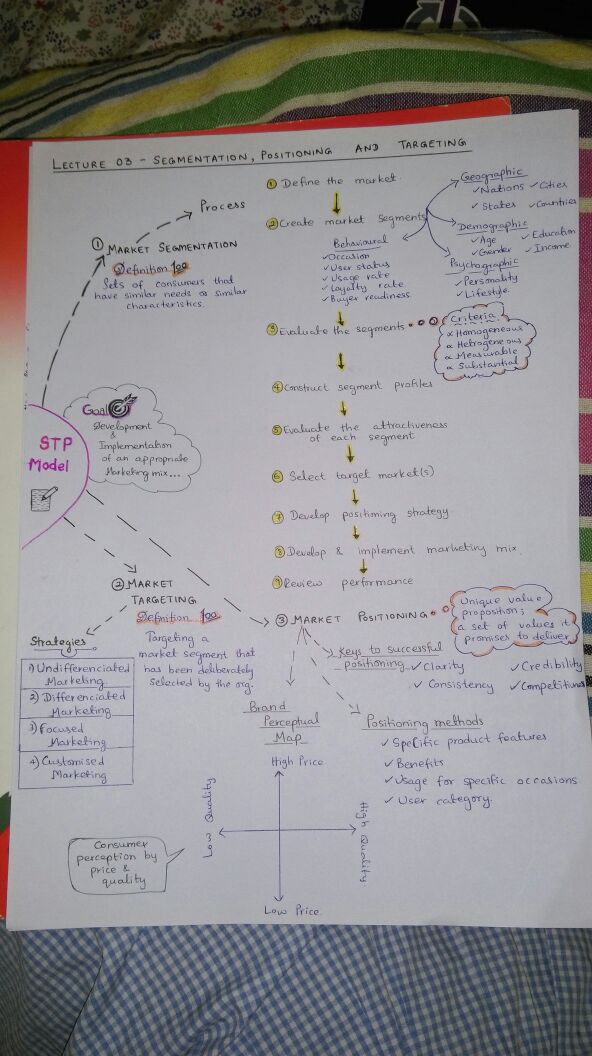 LECTURE 03 - SEGMENTATION, POSITIONING AND TARGETING
STP
Model
Goal
Development
&
Implementation
of an appropriate
Marketing mix...
① MARKET SEGMENTATION
Process
Definition
Sets of consumers that
have similar needs or similar
characteristics.
① Define the market
② Create market segments
Geographic
✓ Nations ✓ Cities
✓ States ✓ Countries
Demographic
✓ Age ✓ Education
✓ Gender ✓ Income
Psychographic
✓ Personality
✓ Lifestyle
Behavioural
✓ Occasion
✓ User status
✓ Usage rate
✓ Loyalty rate
✓ Buyer readiness
③ Evaluate the segments
Criteria
∝ Homogeneous
∝ Hetrogeneous
∝ Measurable
∝ Substantial
④ Construct segment profiles
⑤ Evaluate the attractiveness
of each segment
⑥ Select target market(s)
⑦ Develop positioning strategy
⑧ Develop & implement marketing mix.
⑨ Review performance
② MARKET
TARGETING
Definition
Targeting a
market segment that
has been deliberately
selected by the org.
Strategies
1) Undifferenciated
Marketing
2) Differenciated
Marketing
3) Focused
Marketing
4) Customised
Marketing
③ MARKET POSITIONING
Unique value
proposition;
a set of values it
promises to deliver
Keys to successful
positioning
✓ Clarity ✓ Credibility
✓ Consistency ✓ Competitiveness
Positioning methods
✓ Specific product features
✓ Benefits
✓ Usage for specific occasions
✓ User category.
Brand
Perceptual
Map
High Price
Low Quality
High Quality
Low Price
Consumer
perception by
price &
quality